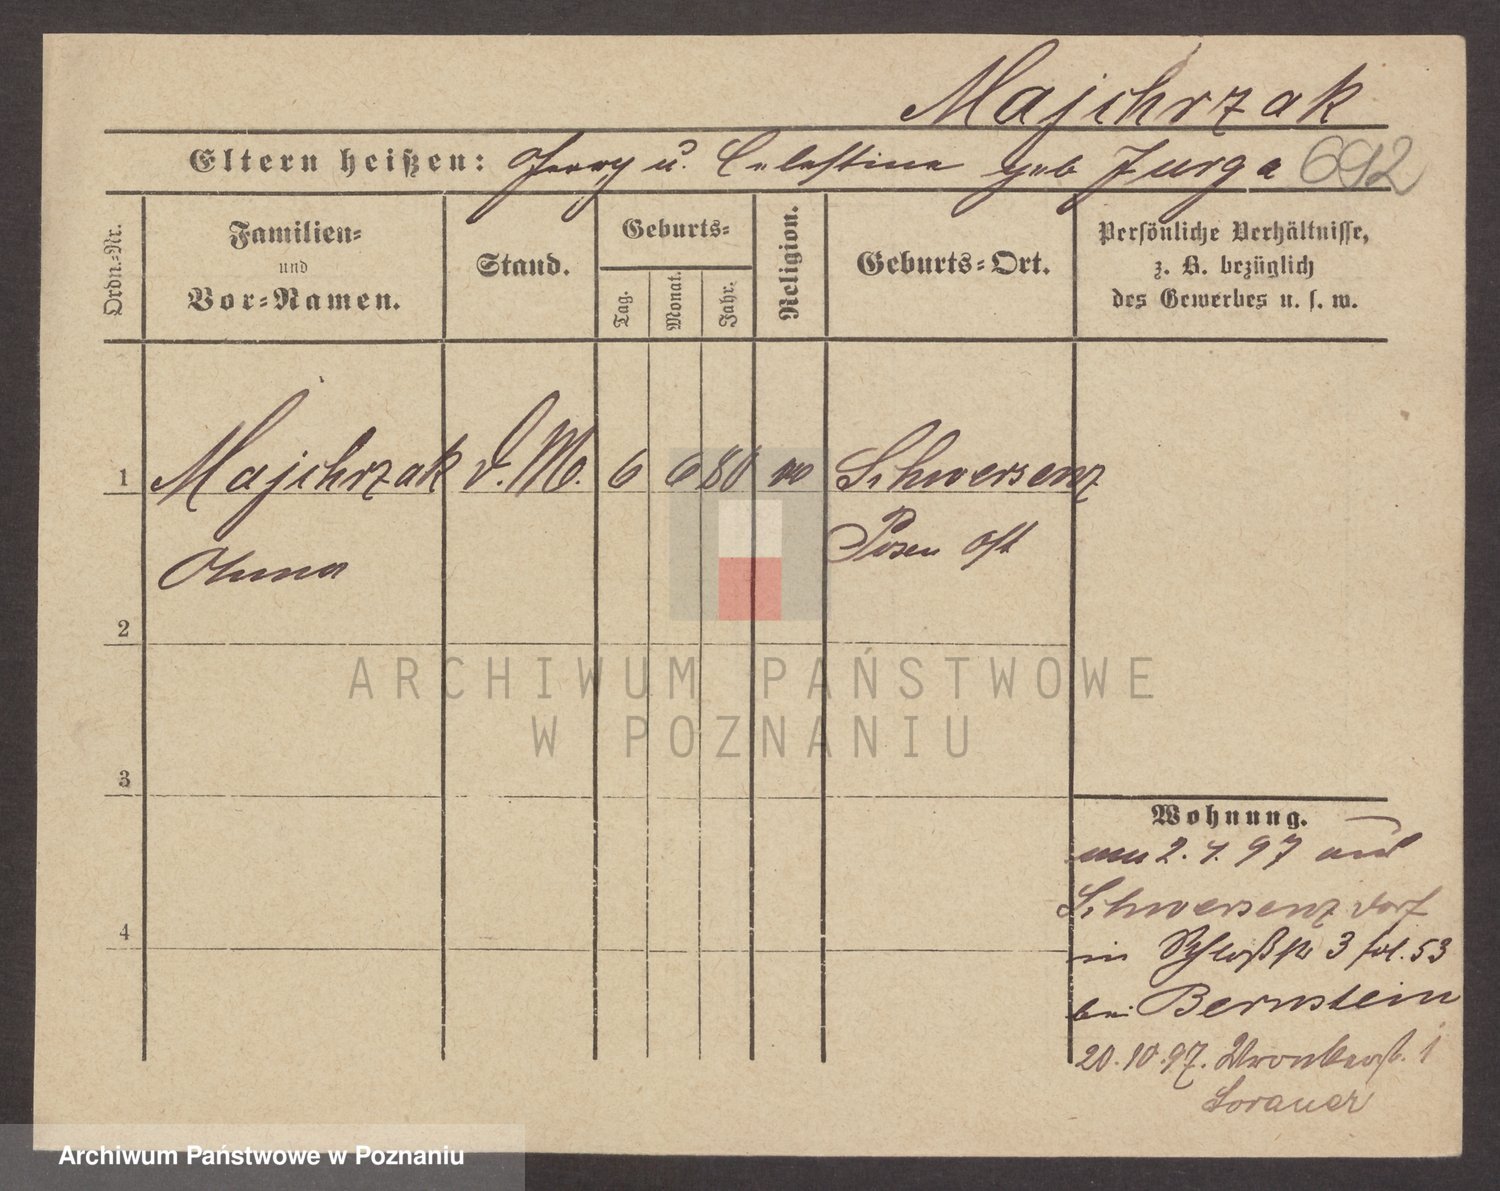 Majchrzak
Eltern heißen: Georg u. Celestine geb Jurga 692
Ordn.-Nr.
Familien-
und
Vor-Namen.
Stand.
Geburts-
Tag.
Monat.
Jahr.
Religion.
Geburts-Ort.
Persönliche Verhältnisse,
z. B. bezüglich
des Gewerbes u. s. w.
1 Majchrzak d. M. 6 6 80 Schwersenz
Posen Ost
2
3
4
Wohnung.
2. 4. 97 aus
Schwersenz Dorf
in Schloßstr 3 fol. 53
bei Bernstein
20.10.97. Wronkerstr. 1
Sorauer
ARCHIWUM PAŃSTWOWE
W POZNANIU
Archiwum Państwowe w Poznaniu